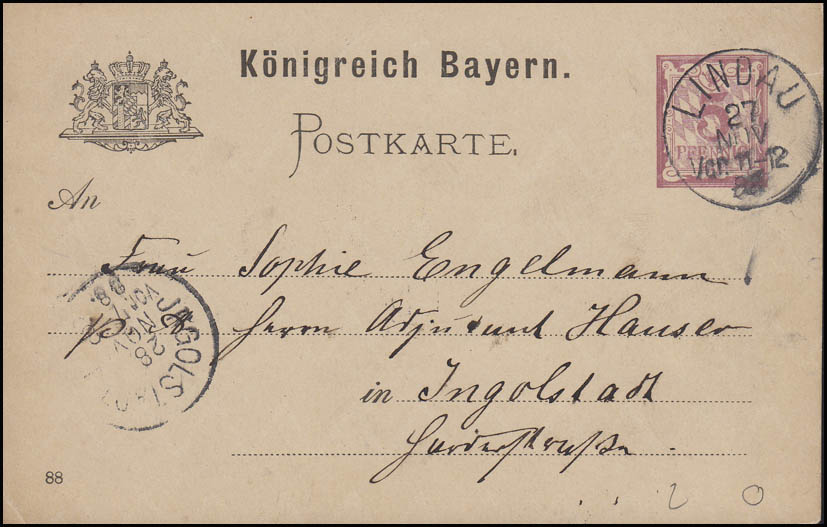 Königreich Bayern.
POSTKARTE.
5
PFENNIG
LINDAU
27
NOV
Vor. 11-12
88
An
Frau Sophie Engelmann
p. A. Herrn Adjutant Hauser
in Ingolstadt
INGOLSTADT
28
NOV
VOR
88
88
2 0